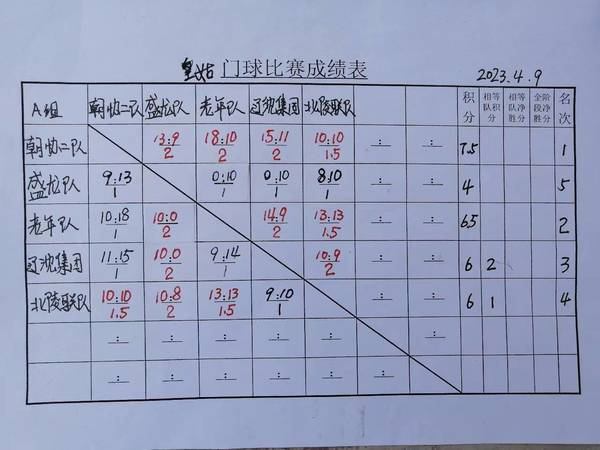 皇姑 门球比赛成绩表 2023.4.9
A组 朝协二队 盛龙队 老年队 辽沈集团 北陵联队 积分 相等队积分 相等队净胜分 全阶段净胜分 名次
朝协二队 13:9 18:10 15:11 10:10 : :
2 2 2 1.5 7.5 1
盛龙队 9:13 0:10 0:10 8:10 : :
1 1 1 1 4 5
老年队 10:18 10:0 14:9 13:13 : :
1 2 2 1.5 6.5 2
辽沈集团 11:15 10:0 9:14 10:9 : :
1 2 1 2 6 2 3
北陵联队 10:10 10:8 13:13 9:10 : :
1.5 2 1.5 1 6 1 4
: : : : : :
: : : : : :